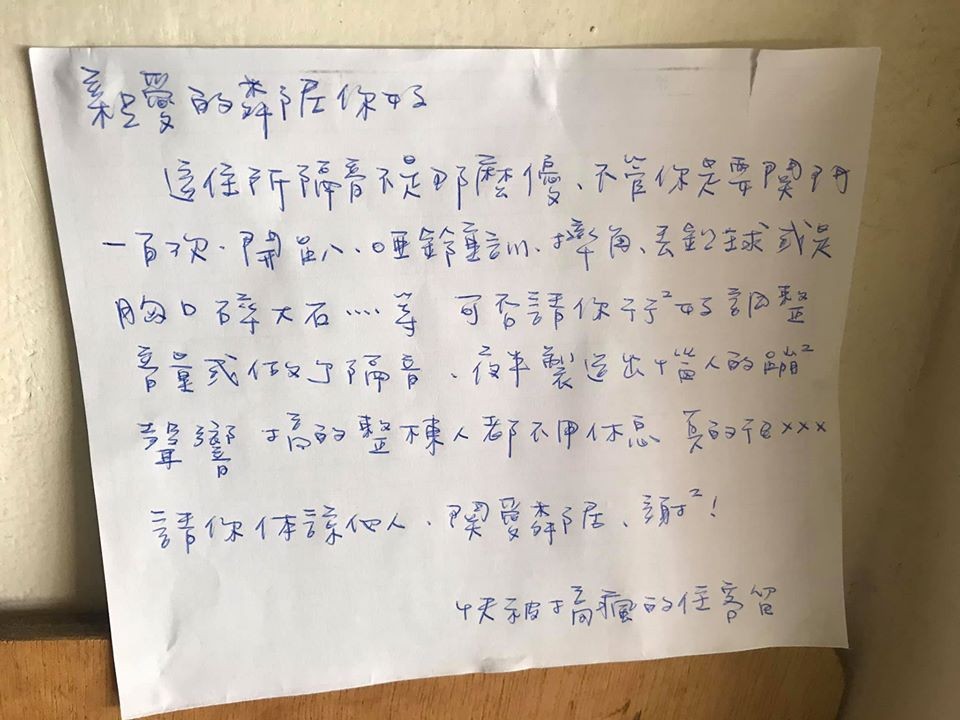 親愛的鄰居你好
這住所隔音不是那麼優、不管你是要關門
一百次、開趴、啞鈴重訓、摔角、丟鉛球或是
胸口碎大石....等 可否請你行行²好調整
音量或做了隔音、夜半製造出惱人的蹦²
聲響 搞的整棟人都不用休息 真的很×××
請你体諒他人、關愛鄰居、謝²!
快被搞瘋的住客留